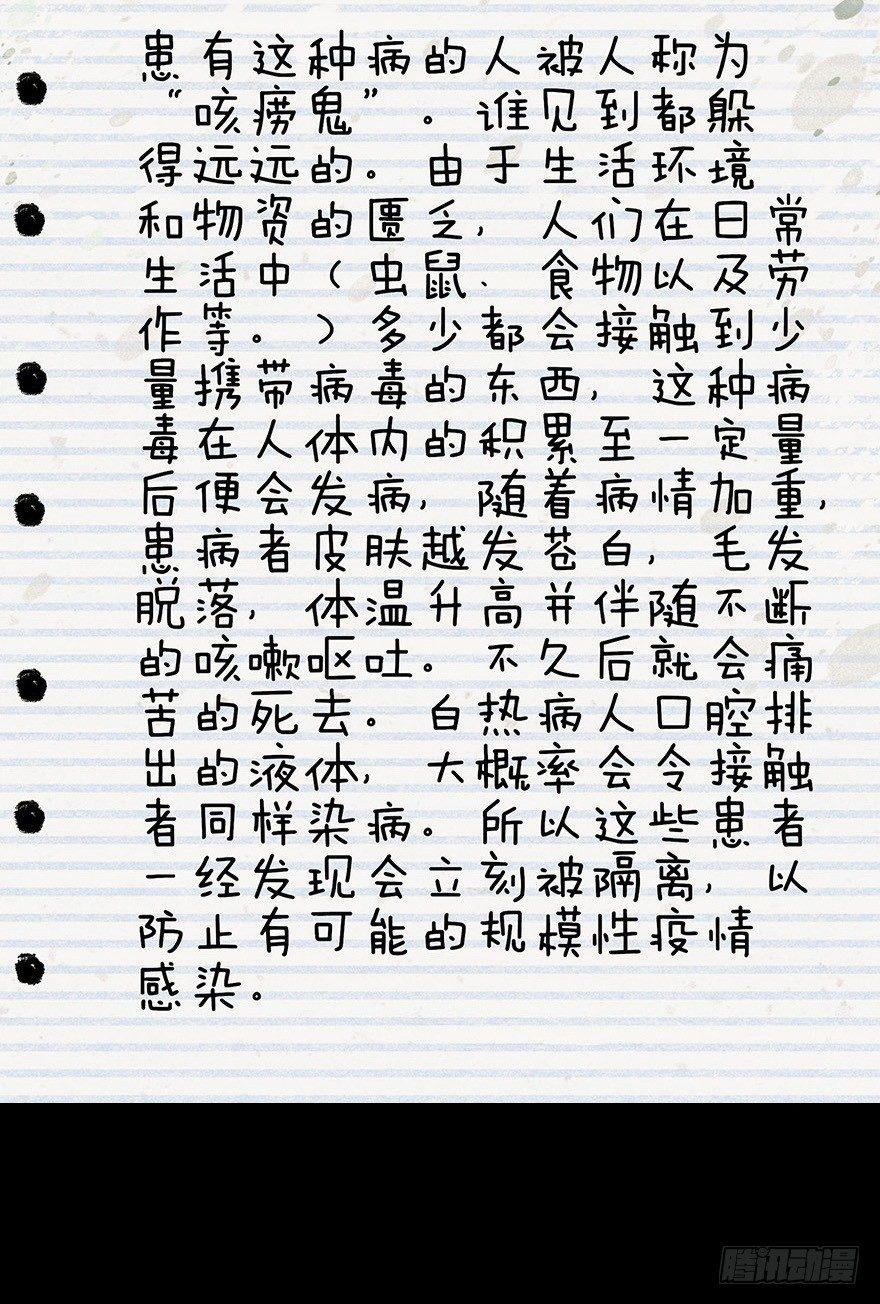 患有这种病的人被人称为
“咳痨鬼”。谁见到都躲
得远远的。由于生活环境
和物资的匮乏，人们在日常
生活中（虫鼠、食物以及劳
作等。）多少都会接触到少
量携带病毒的东西，这种病
毒在人体内的积累至一定量
后便会发病，随着病情加重，
患病者皮肤越发苍白，毛发
脱落，体温升高并伴随不断
的咳嗽呕吐。不久后就会痛
苦的死去。白热病人口腔排
出的液体，大概率会令接触
者同样染病。所以这些患者
一经发现会立刻被隔离，以
防止有可能的规模性疫情
感染。
腾讯动漫